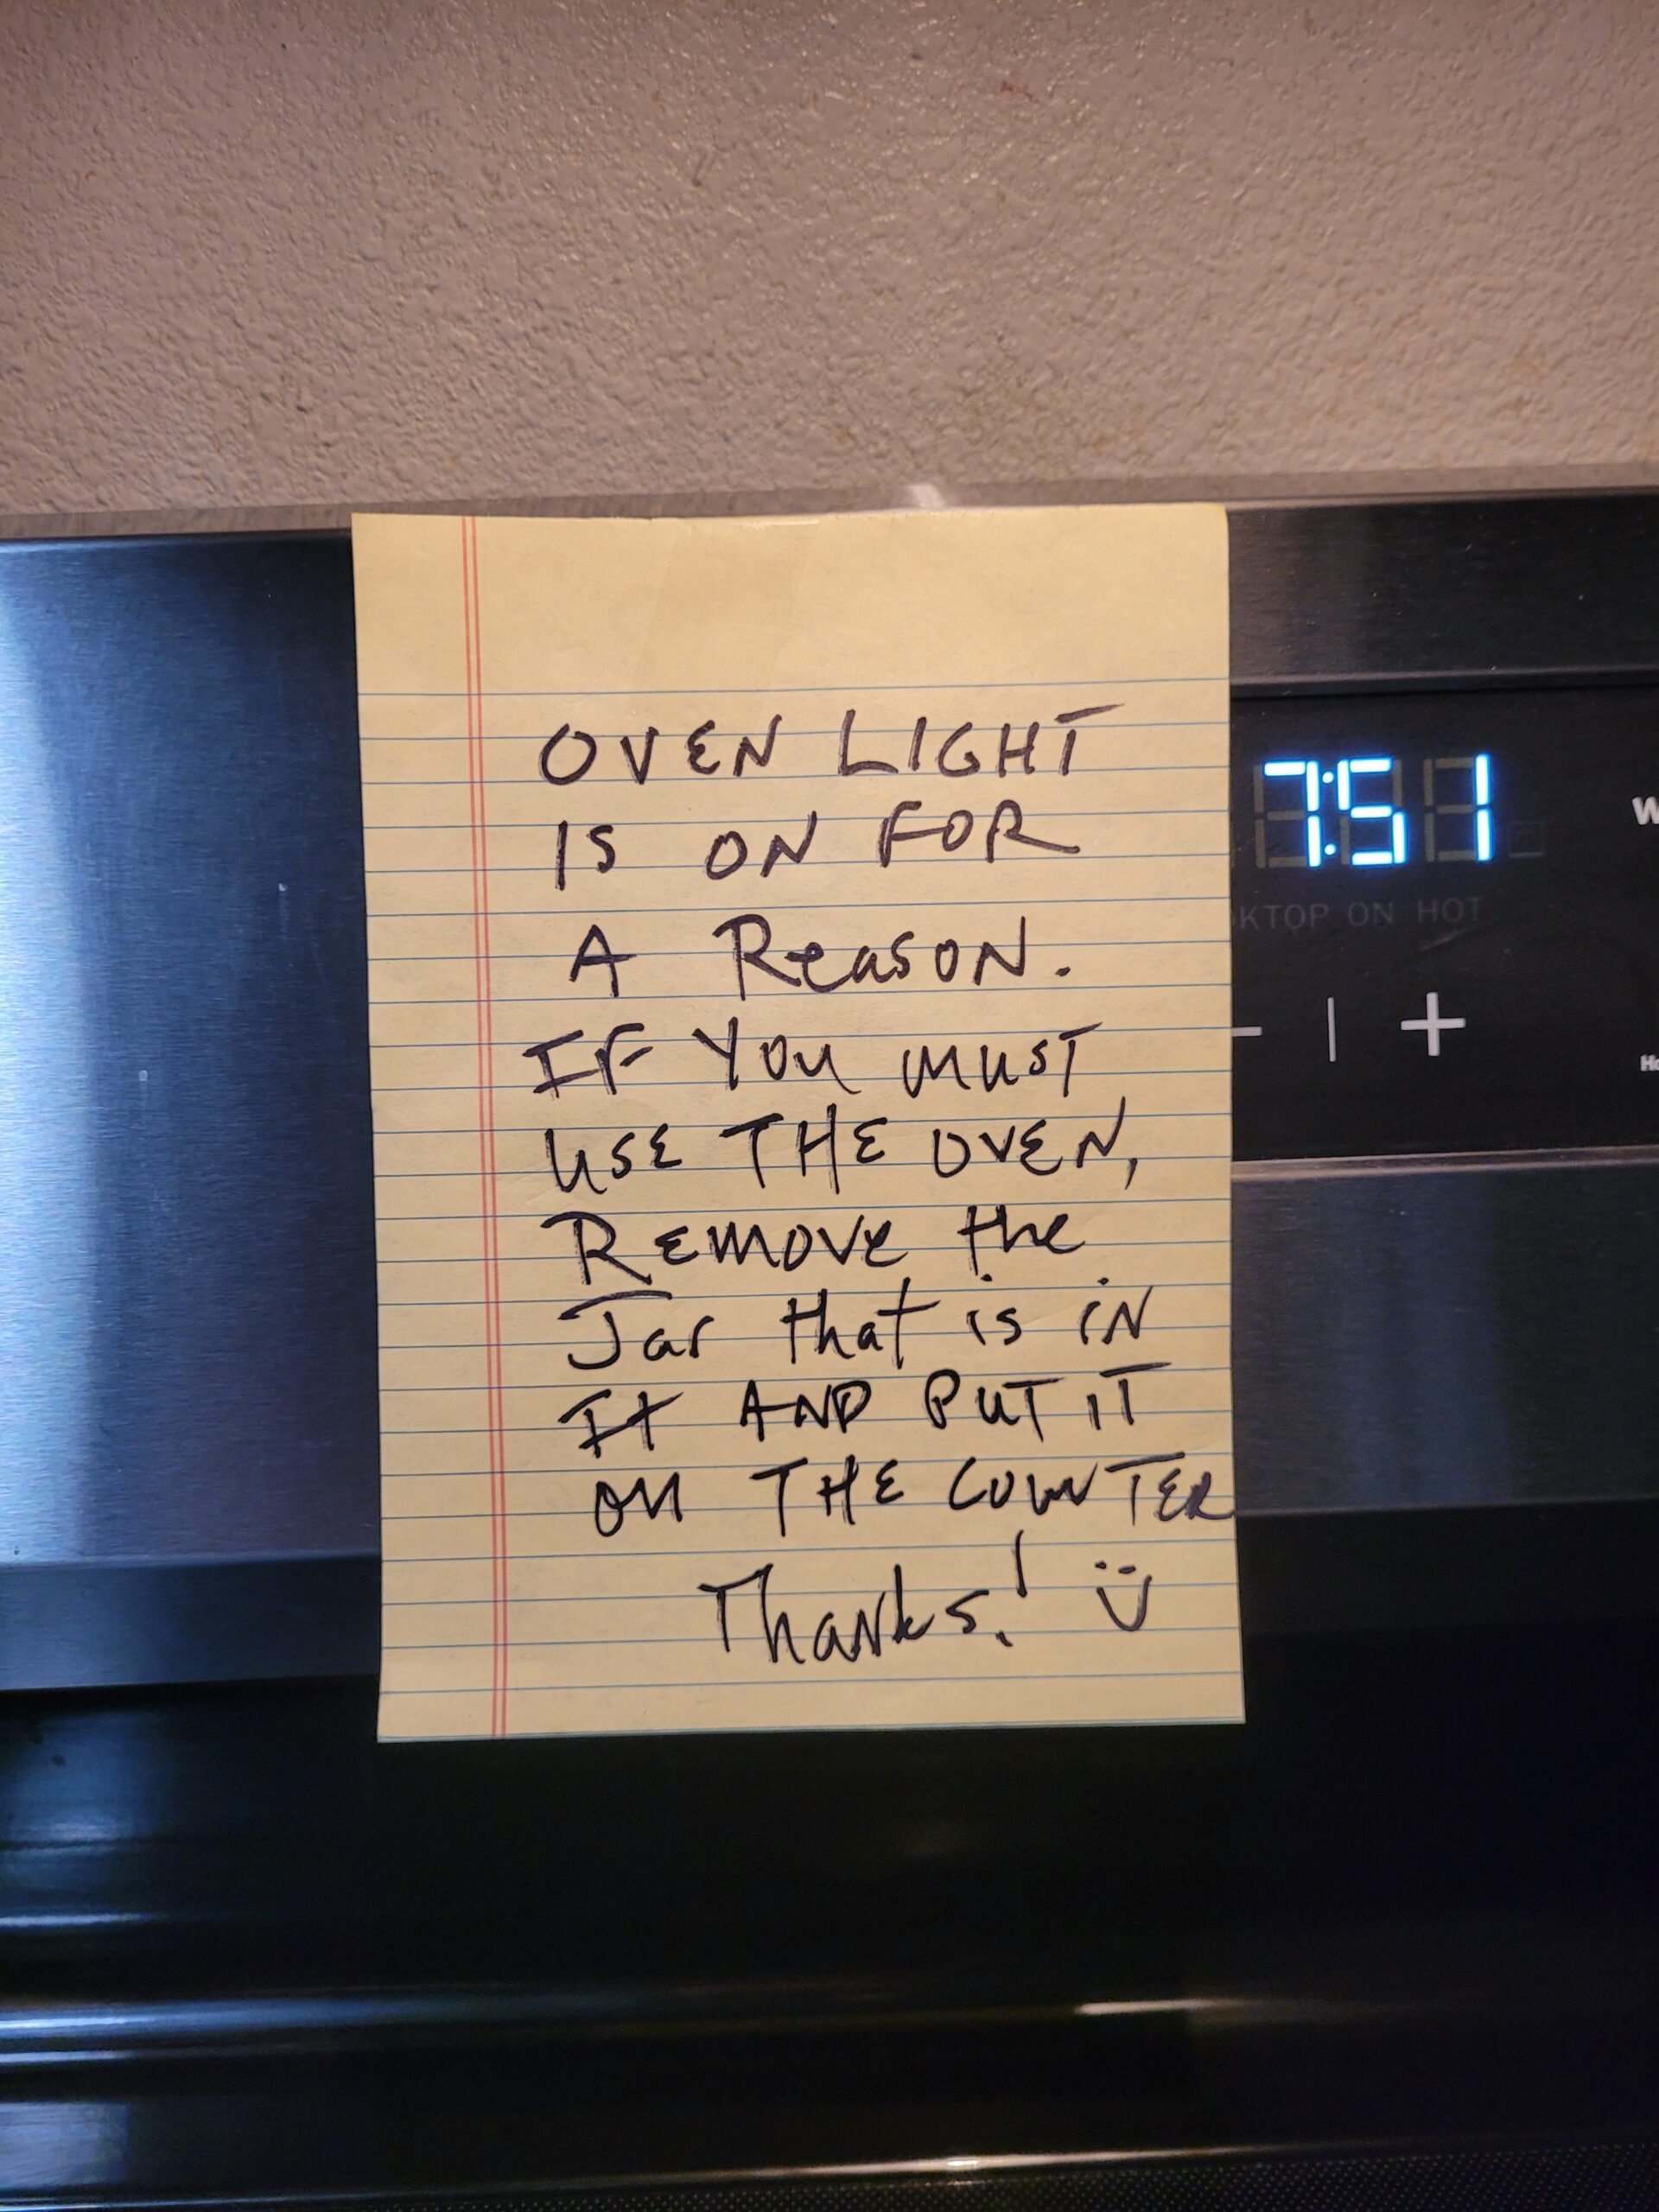 OVEN LIGHT
IS ON FOR
A Reason.
IF YOU MUST
USE THE OVEN,
REMOVE the
Jar that is iN
It AND PUT IT
ON THE COUNTER
Thanks! :)
7:51
KTOP ON HOT
- | +
W
Ho